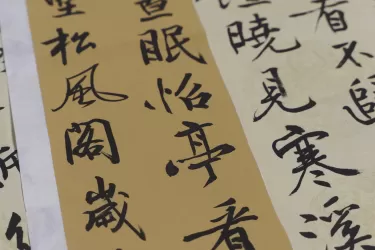 看不歸
曉見寒溪
眠怡亭看
松風閣歲